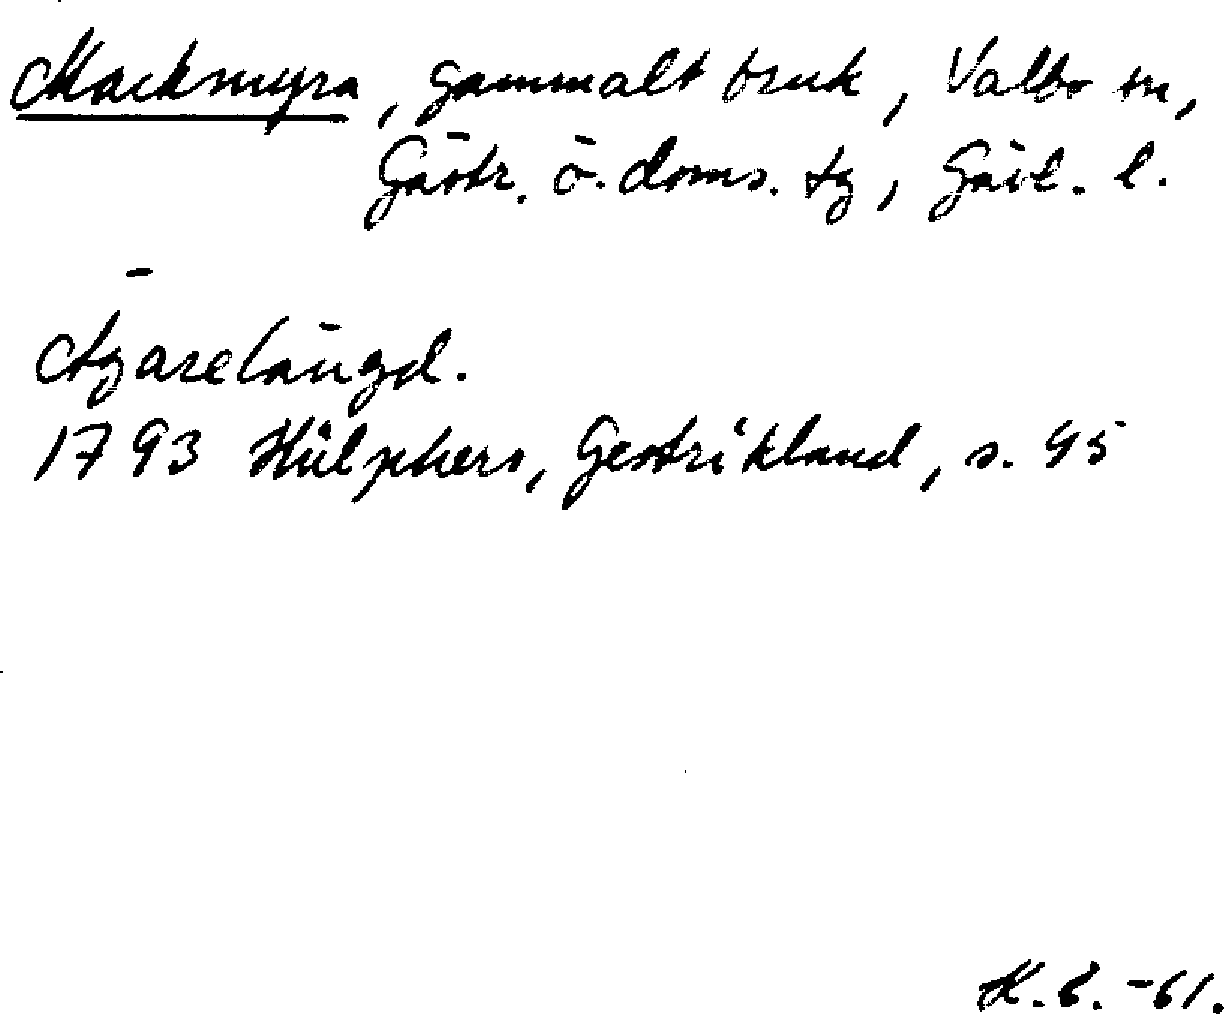 Mackmyra, gammalt bruk, Valbo sn,
Gästr. ö. doms. tg, Gävl. l.
Ägarelängd.
1793 Hülphers, Gestrikland, s. 95